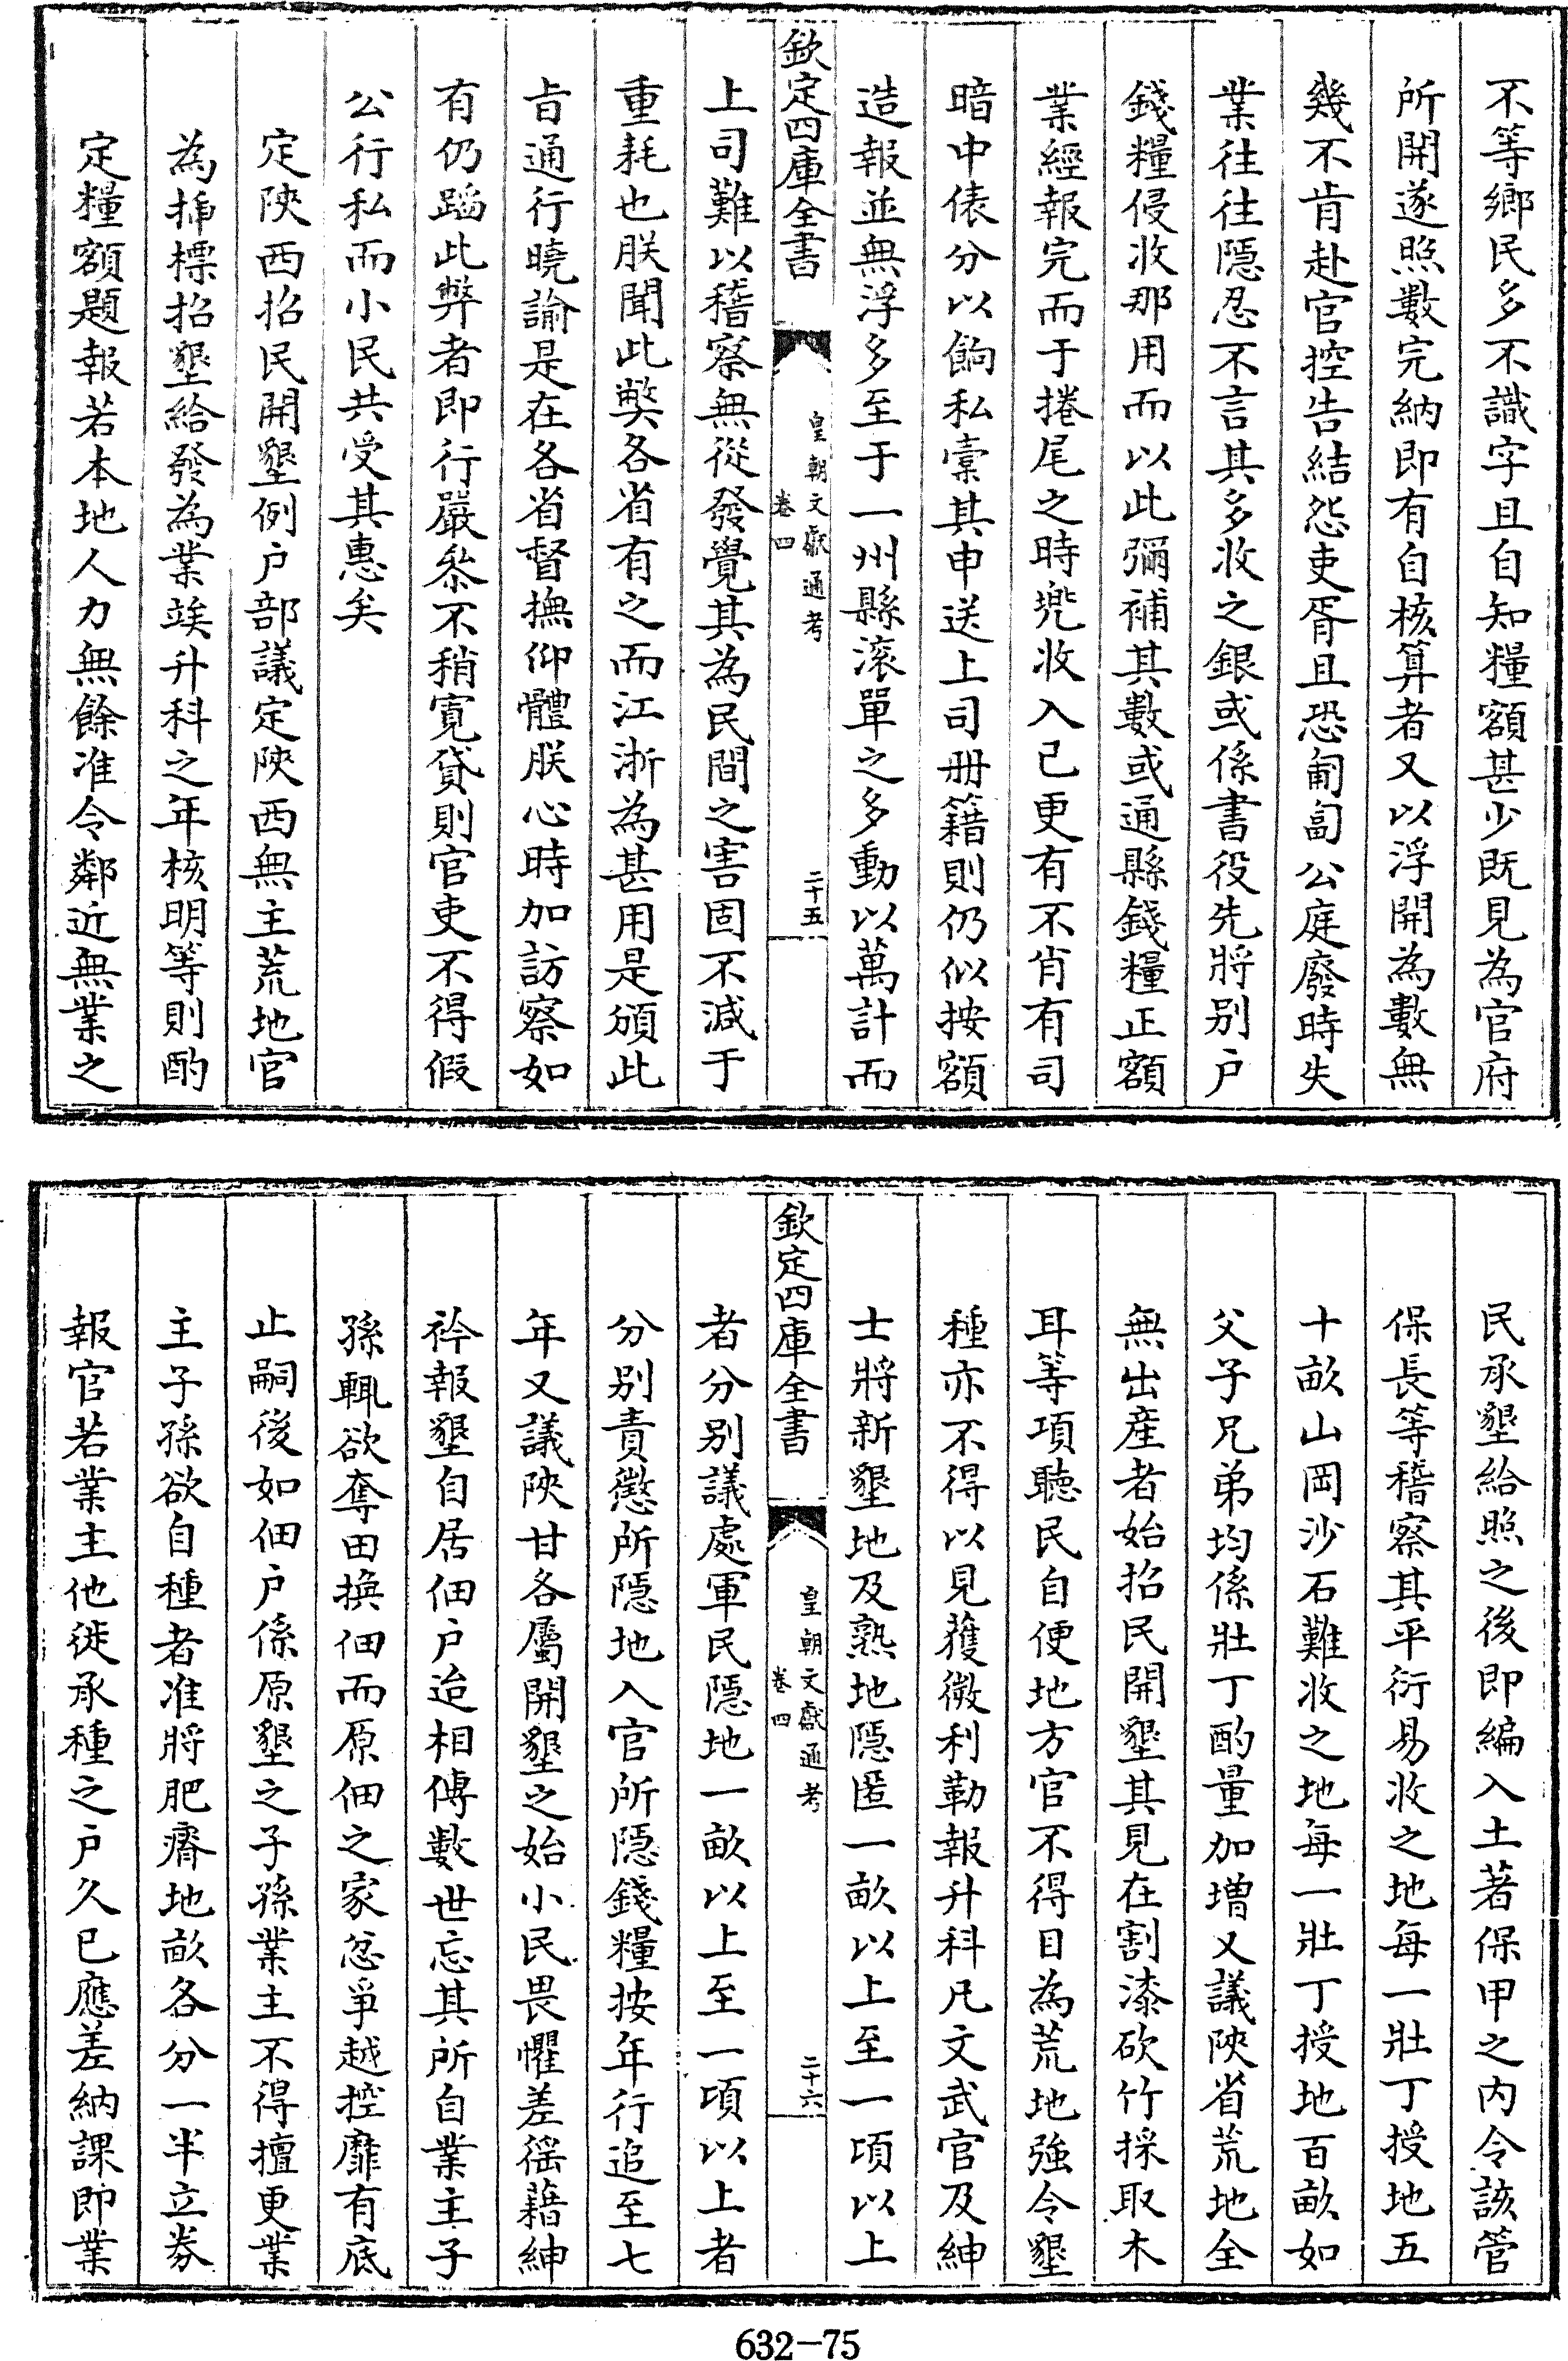 不等鄉民多不識字且自知糧額甚少既見為官府
所開遂照數完納即有自核算者又以浮開為數無
幾不肯赴官控告結怨吏胥且恐匍匐公庭廢時失
業往往隱忍不言其多收之銀或係書役先將别户
錢糧侵收那用而以此彌補其數或通縣錢糧正額
業經報完而于捲尾之時兠收入已更有不肖有司
暗中俵分以餉私槖其申送上司册籍則仍似按額
造報並無浮多至于一州縣滚單之多動以萬計而
欽定四庫全書
皇朝文獻通考
卷四
二十五
上司難以稽察無從發覺其為民間之害固不減于
重耗也朕聞此弊各省有之而江浙為甚用是頒此
㫖通行曉諭是在各省督撫仰體朕心時加訪察如
有仍蹈此弊者即行嚴叅不稍寛貸則官吏不得假
公行私而小民共受其惠矣
定陜西招民開墾例户部議定陜西無主荒地官
為揷標招墾給發為業竢升科之年核明等則酌
定糧額題報若本地人力無餘准令鄰近無業之
民承墾給照之後即編入土著保甲之内令該管
保長等稽察其平衍易收之地每一壯丁授地五
十畝山岡沙石難收之地每一壯丁授地百畝如
父子兄弟均係壯丁酌量加增又議陜省荒地全
無出産者始招民開墾其見在割漆砍竹採取木
耳等項聽民自便地方官不得目為荒地強令墾
種亦不得以見獲微利勒報升科凡文武官及紳
士將新墾地及熟地隱匿一畝以上至一頃以上
欽定四庫全書
皇朝文獻通考
卷四
二十六
者分别議處軍民隱地一畝以上至一頃以上者
分别責懲所隱地入官所隱錢糧按年行追至七
年又議陜甘各屬開墾之始小民畏懼差徭藉紳
衿報墾自居佃户迨相傳數世忘其所自業主子
孫輒欲奪田換佃而原佃之家忿爭越控靡有底
止嗣後如佃户係原墾之子孫業主不得擅更業
主子孫欲自種者准將肥瘠地畝各分一半立劵
報官若業主他徙承種之户久已應差納課即業
632-75